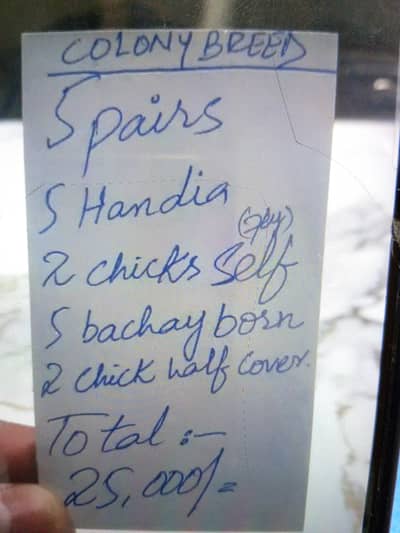 COLONY BREED
5 pairs
5 Handia
2 chicks self
5 bachay born
2 chick half cover.
Total :-
25,000/=